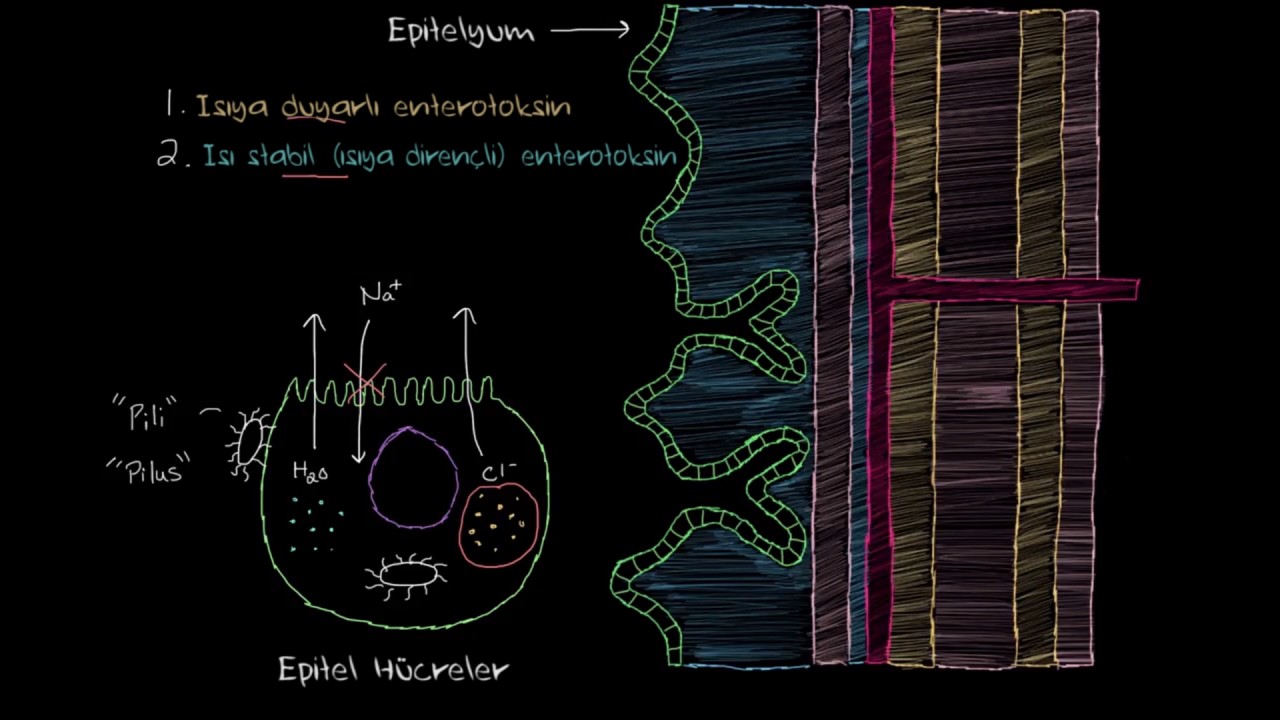 Epitelyum
1. Isıya duyarlı enterotoksin
2. Isı stabil (ısıya dirençli) enterotoksin
Na⁺
"Pili"
"Pilus"
H₂O
Cl⁻
Epitel Hücreler